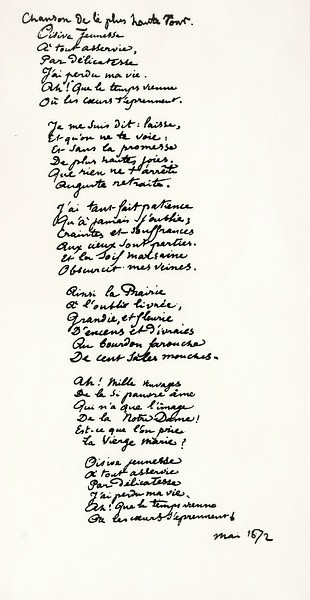 Chanson de la plus haute Tour.
Oisive Jeunesse
A tout asservie,
Par délicatesse
J'ai perdu ma vie.
Ah! Que le temps vienne
Où les cœurs s'éprennent.
Je me suis dit : laisse,
Et qu'on ne te voie :
Et sans la promesse
De plus hautes joies.
Que rien ne t'arrête
Auguste retraite.
J'ai tant fait patience
Qu'à jamais j'oublie ;
Craintes et souffrances
Aux cieux sont parties.
Et la Soif malsaine
Obscurcit mes veines.
Ainsi la Prairie
A l'oubli livrée,
Grandie, et fleurie
D'encens et d'ivraies
Au bourdon farouche
De cent sales mouches.
Ah! Mille veuvages
De la si pauvre âme
Qui n'a que l'image
De la Notre Dame!
Est-ce que l'on prie
La Vierge Marie ?
Oisive jeunesse
A tout asservie
Par délicatesse
J'ai perdu ma vie.
Ah! Que le temps vienne
Où les cœurs s'éprennent!
mai 1872